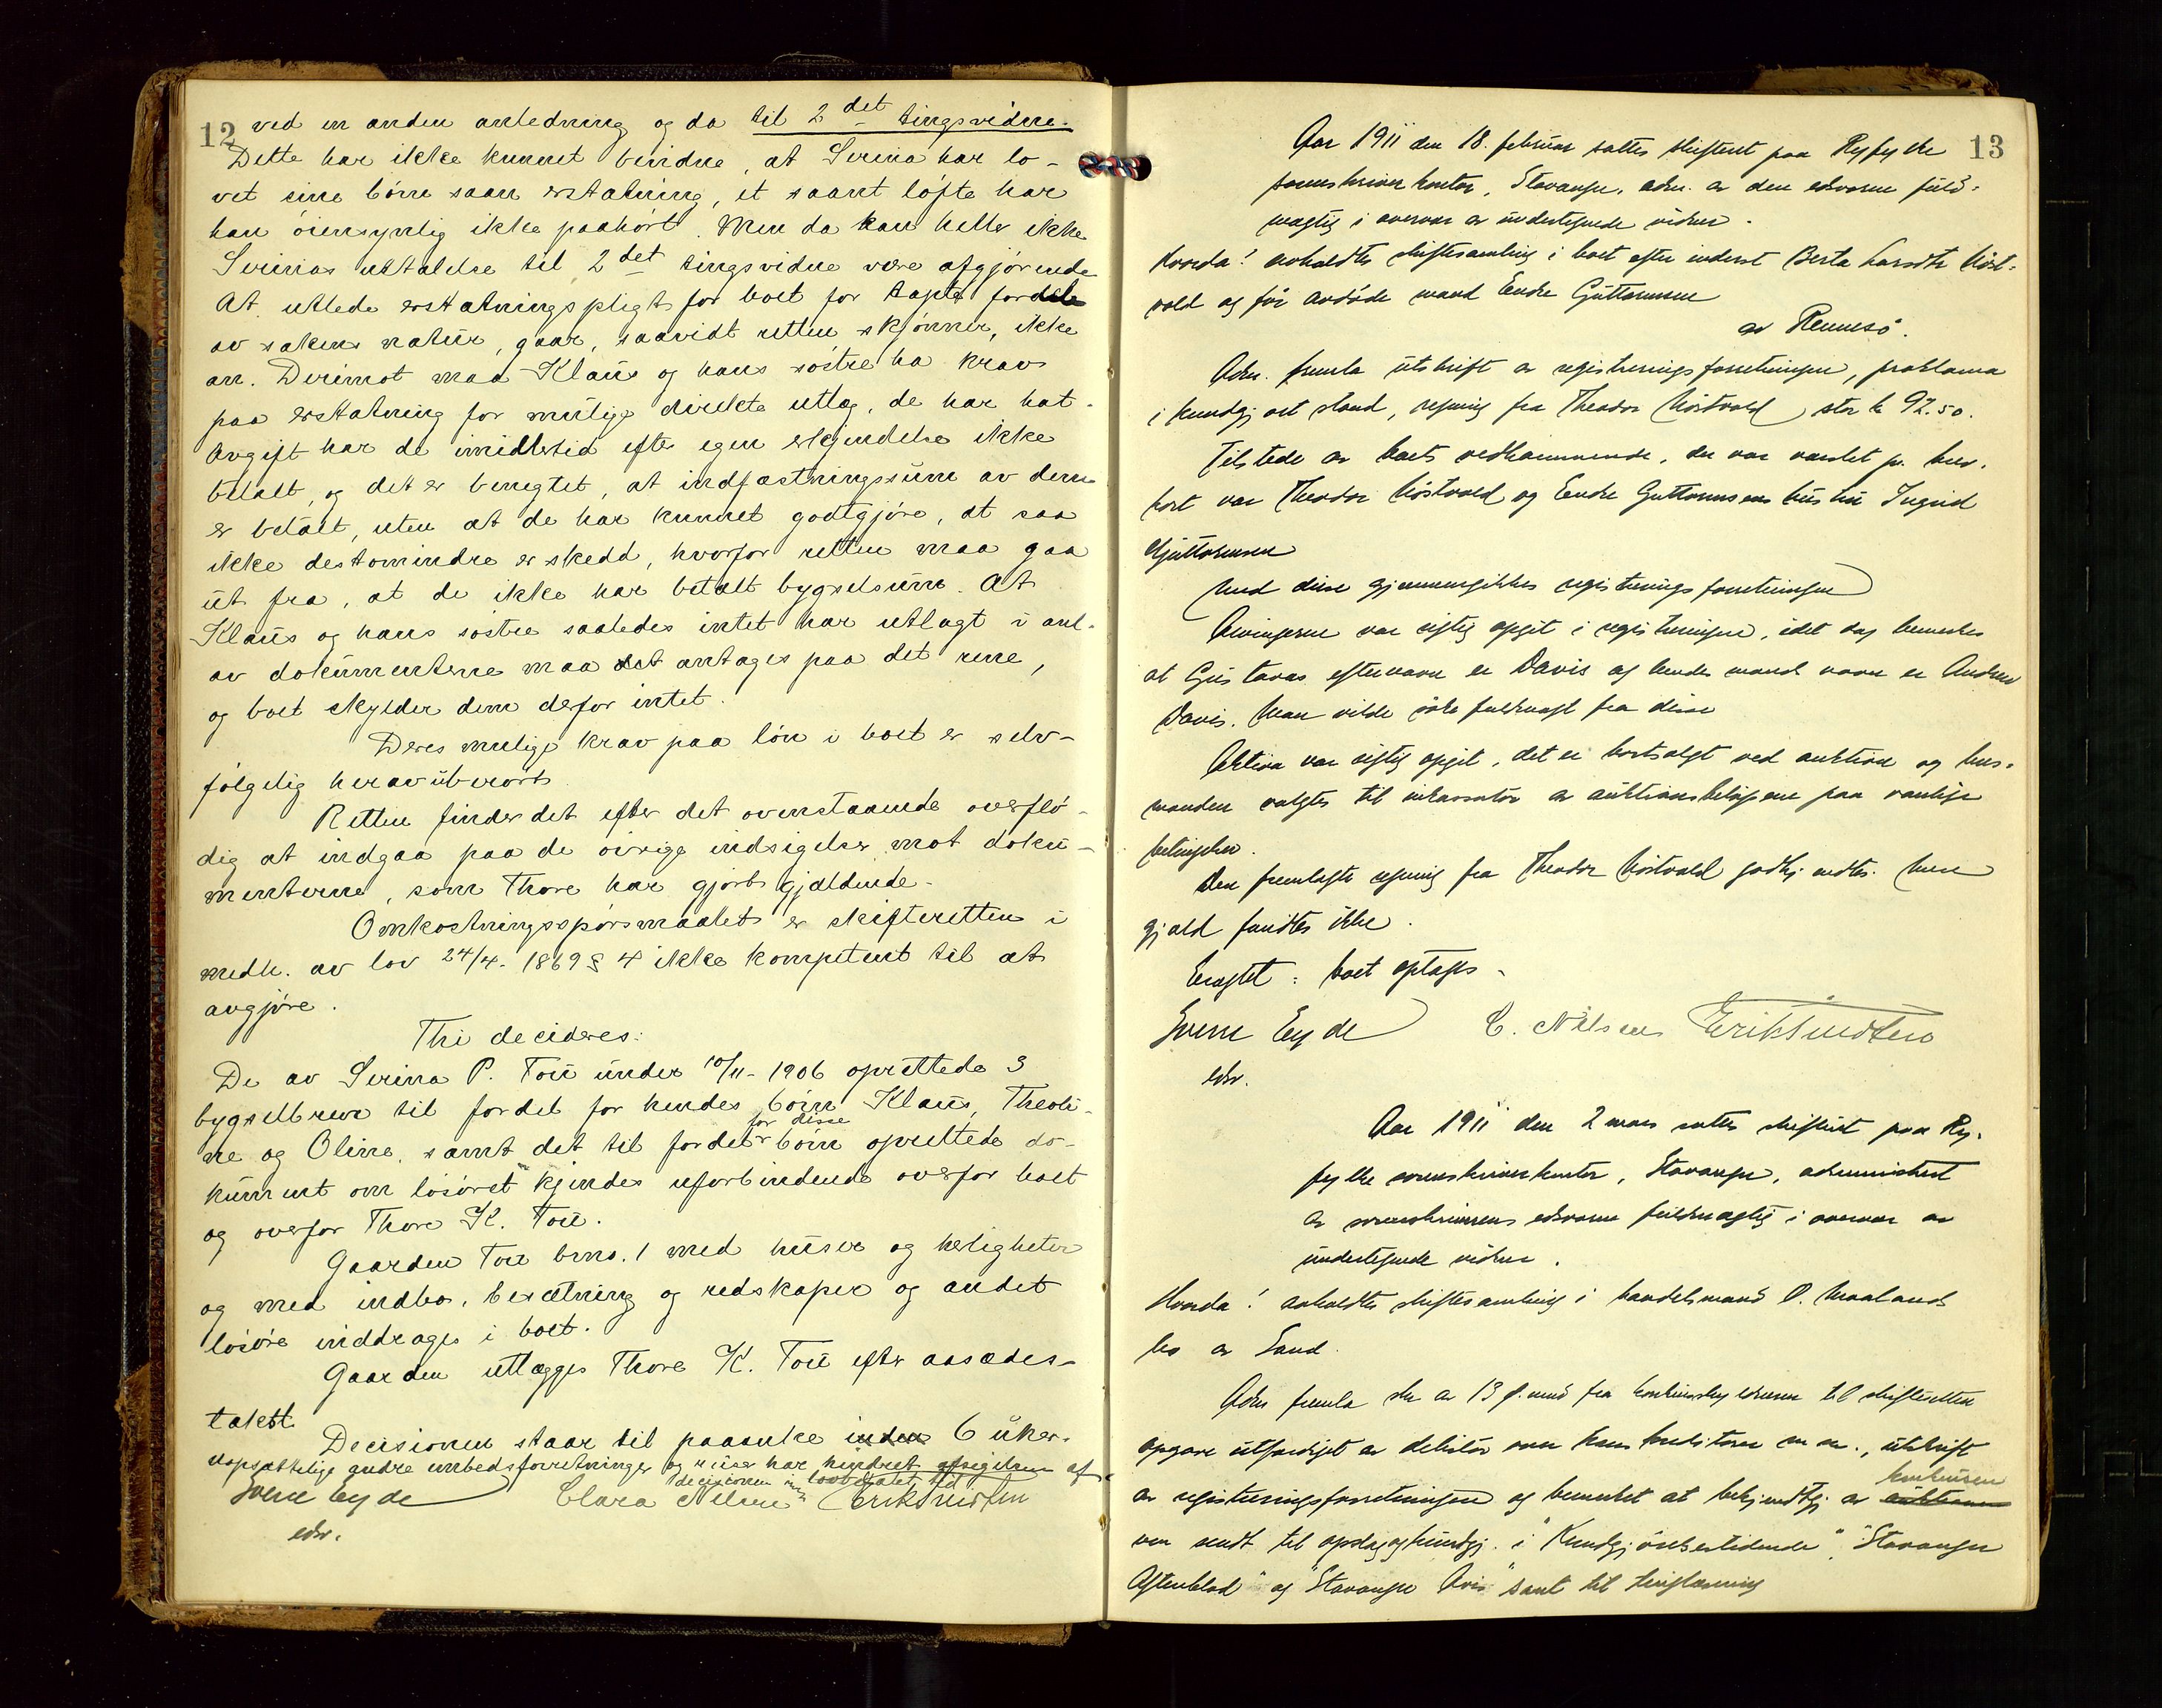 12
ved en anden anledning og da til 2det tingsvidne.
Dette har ikke kunnet bindne, at Serina har lo-
vet sine börn saan erstatning, et saant löfte har
han öiensynlig ikke paahört. Men da kan heller ikke
Serinas uttalelse til 2det tingsvidne være afgjörende
At utlede erstatningspligt for boet for tapte fordele
av sakens natur, gaar, saavidt retten skjönner, ikke
an. Derimot maa Klaus og hans söstre ha krav
paa erstatning for mulige direkte utlæg, de har hat.
Avgift har de imidlertid efter egen erkjendelse ikke
betalt, og det er benegtet, at indfæstningssum av dem
er betalt, uten at de har kunnet godtgjöre, at saa
ikke destomindre er skedd, hvorfor retten maa gaa
ut fra, at de ikke har betalt bygselsum. At
Klaus og hans söstre saaledes intet har utlagt i anl.
av dokumenterne maa det antages paa det rene,
og boet skylder dem derfor intet.
Deres mulige krav paa lön i boet er selv-
fölgelig herav uberört
Retten finder det efter det ovenstaaende overflö-
dig at indgaa paa de övrige indsigelser mot doku-
menterne, som Thore har gjort gjældende.
Omkostningsspörsmaalet er skifteretten i
medh. av lov 24/4. 1869 § 4 ikke kompetent til at
avgjöre.
Thi decideres:
De av Serina P. Tou under 10/11-1906 oprettede 3
bygselbreve til fordel for hendes börn Klaus, Theoli-
ne og Oline, samt det til fordel for disse börn oprettede do-
kument om lösöret kjendes uforbindende overfor boet
og overfor Thore K. Tou.
Gaarden Tou brno. 1 med huser og herligheter
og med indbo, besætning og redskaper og andet
lösöre inddrages i boet.
Gaarden utlægges Thore K. Tou efter aasædes-
takst
Decisionen staar til paaanke inden 6 uker.
Uopsættelige andre embedsforretninger og reiser har hindret afsigelsen af
decisionen inden lovbefalet tid
Sverre Eyde Clara Nilsen Erik Knudsen
edsv.
13
Aar 1911 den 18. februar sattes skifteret paa Ryfylke
sorenskriverkontor, Stavanger, adm. av den edsvorne fuld-
mægtig i overvær av undertegnede vidner.
Hvorda! avholdtes skiftesamling i boet efter inderst Berta Larsdtr Höst-
vold og för avdöde mand Endre Guttormsen
av Rennesö.
Adm. fremla utskrift av registreringsforretningen, proklama
i kundgjort stand, regning fra Theodor Höstvold stor kr 92.50.
Tilstede av boets vedkommende, der var varslet pr. brev-
kort var Theodor Höstvold og Endre Guttormsens hustru Ingrid
Guttormsen
Med disse gjennemgikkes registreringsforretningen
Arvingerne var rigtig opgit i registreringen, idet dog bemerkes
at Gustavas efternavn er Davis og hendes mands navn er Andrew
Davis. Man vilde söke fuldmagt fra disse
Aktiva var rigtig opgit, det er bortsolgt ved auktion og lens-
manden valgtes til inkassator av auktionsbelöpene paa vanlige
betingelser.
Den fremlagte regning fra Theodor Höstvold godkjendtes. Mere
gjæld fandtes ikke.
Eragtet: boet optages.
Sverre Eyde C. Nilsen Erik Knudsen
edsv.
Aar 1911 den 2 mars sattes skifteret paa Ry-
fylke sorenskriverkontor, Stavanger, administrert
av sorenskriverens edsvorne fuldmægtig i overvær av
undertegnede vidner.
Hvorda! avholdtes skiftesamling i handelsmand O. Maalands
bo av Sand.
Adm fremla skr av 13 f. mnd fra til skifteretten
opgave utfærdiget av debitor over hans kreditorer m m., utskrift
av registreringsforretningen og bemerket at bekjendtgj. av auktionen konkursen
var sendt til opslag og kundgj. i "Kundgjörelsestidende", "Stavanger
Aftenblad" og "Stavanger Avis" samt til tinglæsning